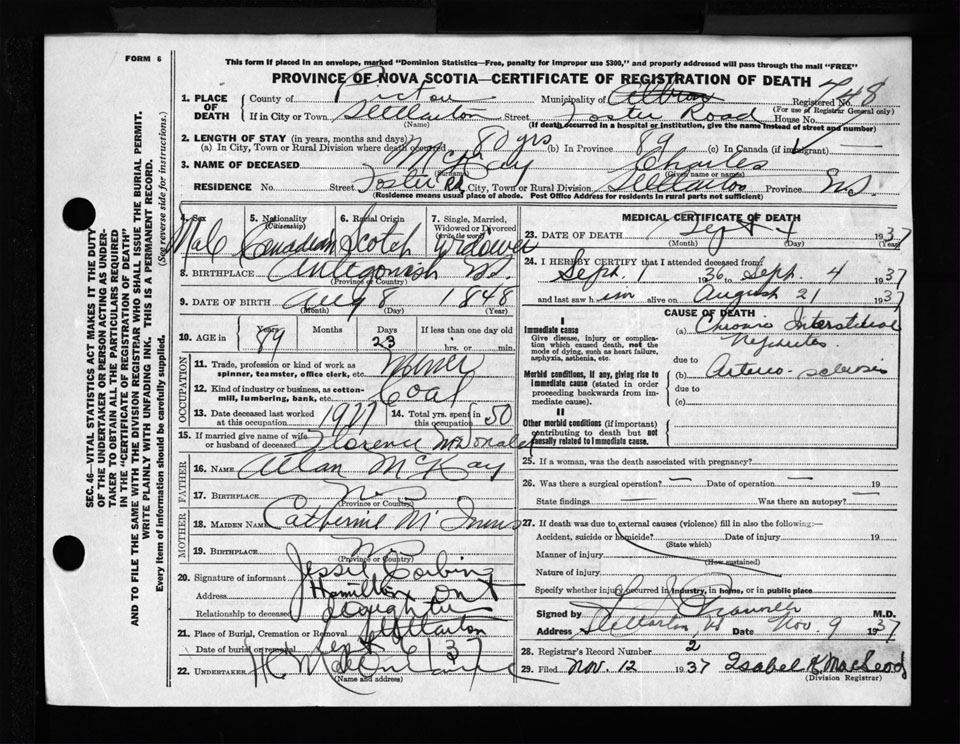 FORM 6
This form if placed in an envelope, marked "Dominion Statistics—Free, penalty for improper use $300," and properly addressed will pass through the mail "FREE"
PROVINCE OF NOVA SCOTIA—CERTIFICATE OF REGISTRATION OF DEATH
1. PLACE OF DEATH
County of Pictou Municipality of Albion Registered No. 748
(For use of Registrar General only)
If in City or Town Stellarton Street Foster Road House No.
(Name) (If death occurred in a hospital or institution, give the name instead of street and number)
2. LENGTH OF STAY (in years, months and days)
(a) In City, Town or Rural Division where death occurred 80 yrs (b) In Province 89 (c) In Canada (if immigrant) —
3. NAME OF DECEASED McKay Charles
(Surname) (Given name or names)
RESIDENCE No. Street Foster Rd City, Town or Rural Division Stellarton Province N.S
(Residence means usual place of abode. Post Office Address for residents in rural parts not sufficient)
4. Sex Male
5. Nationality (Citizenship) Canadian
6. Racial Origin Scotch
7. Single, Married, Widowed or Divorced (write the word) Widower
8. BIRTHPLACE Antigonish N.S.
(Province or Country)
9. DATE OF BIRTH Aug 8 1848
(Month) (Day) (Year)
10. AGE in Years 89 Months Days 23 If less than one day old hrs. or min.
OCCUPATION
11. Trade, profession or kind of work as spinner, teamster, office clerk, etc. Miner
12. Kind of industry or business, as cotton-mill, lumbering, bank, etc. Coal
13. Date deceased last worked at this occupation 14. Total yrs. spent in this occupation 50
15. If married give name of wife or husband of deceased Florence McDonald
FATHER
16. NAME Alan McKay
17. BIRTHPLACE N.S
(Province or Country)
MOTHER
18. MAIDEN NAME Catherine McInnis
19. BIRTHPLACE N.S
(Province or Country)
20. Signature of informant Jessie
Address Hamilton Ont
Relationship to deceased daughter
21. Place of Burial, Cremation or Removal Stellarton
Date of burial or removal Sept 6 37
22. UNDERTAKER
(Name and address)
MEDICAL CERTIFICATE OF DEATH
23. DATE OF DEATH Sept 4 1937
(Month) (Day) (Year)
24. I HEREBY CERTIFY that I attended deceased from
Sept. 1 1936 Sept. 4 1937
and last saw him alive on August 21 1937
CAUSE OF DEATH
I
Immediate cause
Give disease, injury or complication which caused death, not the mode of dying, such as heart failure, asphyxia, asthenia, etc.
(a) Chronic Interstitial Nephritis
due to
Morbid conditions, if any, giving rise to immediate cause (stated in order proceeding backwards from immediate cause).
(b) Arterio-sclerosis
due to
(c)
II
Other morbid conditions (if important) contributing to death but not causally related to immediate cause.
25. If a woman, was the death associated with pregnancy?
26. Was there a surgical operation? — Date of operation — 19
State findings — Was there an autopsy? —
27. If death was due to external causes (violence) fill in also the following:—
Accident, suicide or homicide? Date of injury 19
(State which)
Manner of injury
(How sustained)
Nature of injury
Specify whether injury occurred in industry, in home, or in public place
Signed by M.D.
Address Stellarton Date Nov. 9 1937
28. Registrar's Record Number 2
29. Filed Nov. 12 1937 Isabel K. MacLeod
(Division Registrar)
SEC. 46—VITAL STATISTICS ACT MAKES IT THE DUTY
OF THE UNDERTAKER OR PERSON ACTING AS UNDER-
TAKER TO OBTAIN ALL THE PARTICULARS REQUIRED
IN THE "CERTIFICATE OF REGISTRATION OF DEATH"
AND TO FILE THE SAME WITH THE DIVISION REGISTRAR WHO SHALL ISSUE THE BURIAL PERMIT.
WRITE PLAINLY WITH UNFADING INK. THIS IS A PERMANENT RECORD.
Every item of information should be carefully supplied. (See reverse side for instructions.)